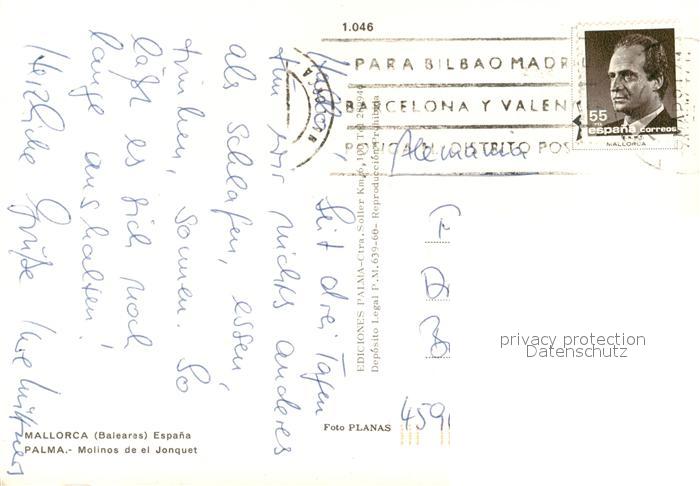 1.046
PARA BILBAO MADR
BARCELONA Y VALEN
DISTRITO POS
55
PTA
españa correos
MALLORCA
Alemania
Hallo! Seit drei Tagen
tun wir nichts anderes
als schlafen, essen,
trinken, sonnen. So
läßt es sich noch
lange aushalten!
Herzliche Grüße
EDICIONES PALMA-Ctra. Soller Km.
Depósito Legal P.M-639-60- Reproducción Prohibida
privacy protection
Datenschutz
Foto PLANAS
MALLORCA (Baleares) España
PALMA.- Molinos de el Jonquet